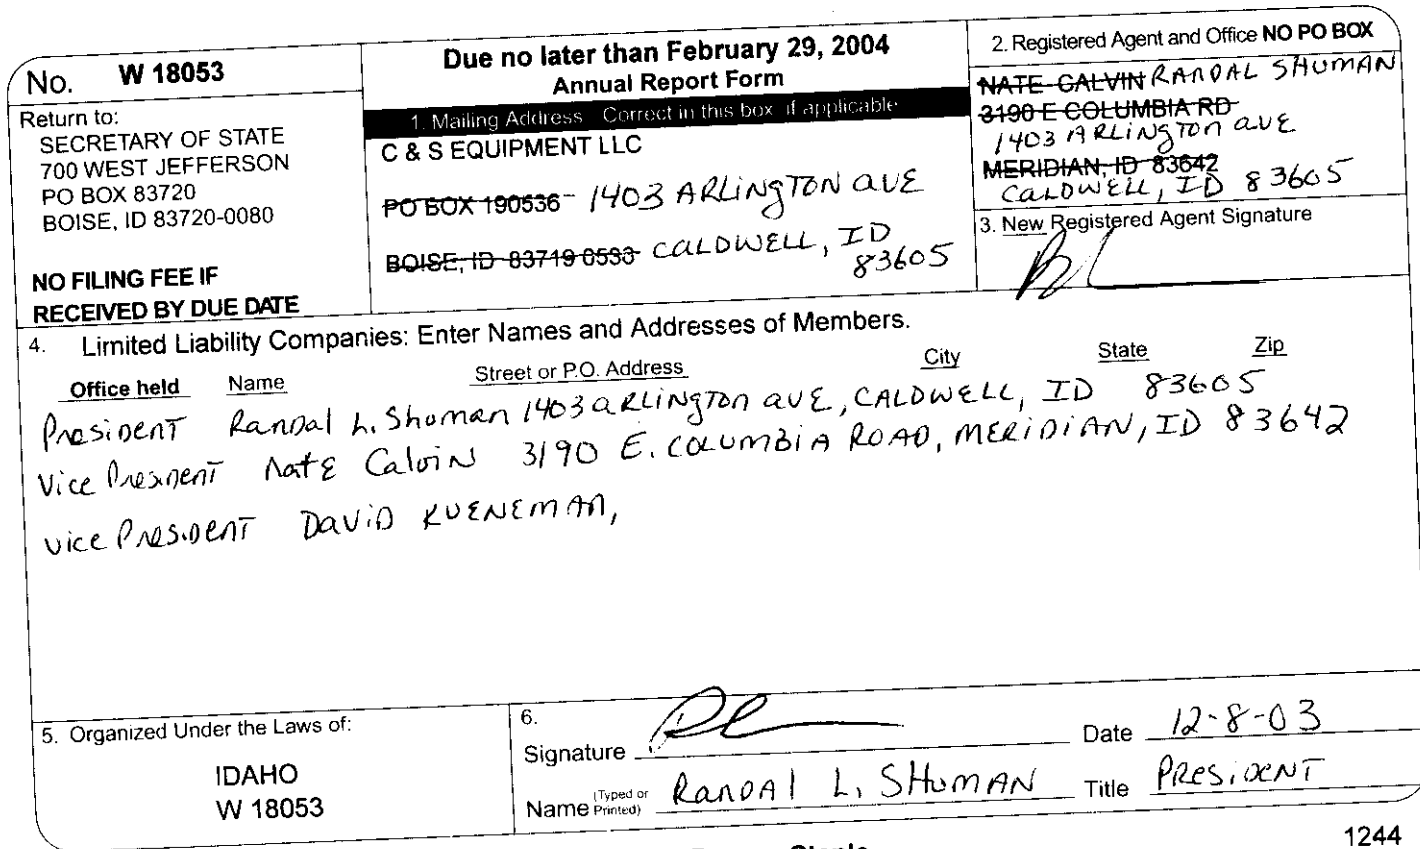 No. W 18053
Return to:
SECRETARY OF STATE
700 WEST JEFFERSON
PO BOX 83720
BOISE, ID 83720-0080
NO FILING FEE IF
RECEIVED BY DUE DATE
Due no later than February 29, 2004
Annual Report Form
1. Mailing Address Correct in this box if applicable
C & S EQUIPMENT LLC
PO BOX 190536 1403 ARLINGTON AVE
BOISE, ID 83719 0533 CALDWELL, ID
83605
2. Registered Agent and Office NO PO BOX
NATE CALVIN RANDAL SHUMAN
3190 E COLUMBIA RD
1403 ARLINGTON AVE
MERIDIAN, ID 83642
CALDWELL, ID 83605
3. New Registered Agent Signature
4. Limited Liability Companies: Enter Names and Addresses of Members.
Office held Name Street or P.O. Address City State Zip
President Randal L. Shuman 1403 ARLINGTON AVE, CALDWELL, ID 83605
Vice President Nate Calvin 3190 E. COLUMBIA ROAD, MERIDIAN, ID 83642
Vice President DAVID KUENEMAN,
5. Organized Under the Laws of:
IDAHO
W 18053
6.
Signature Date 12-8-03
Name (Typed or Printed) RANDAL L. SHUMAN Title PRESIDENT
1244